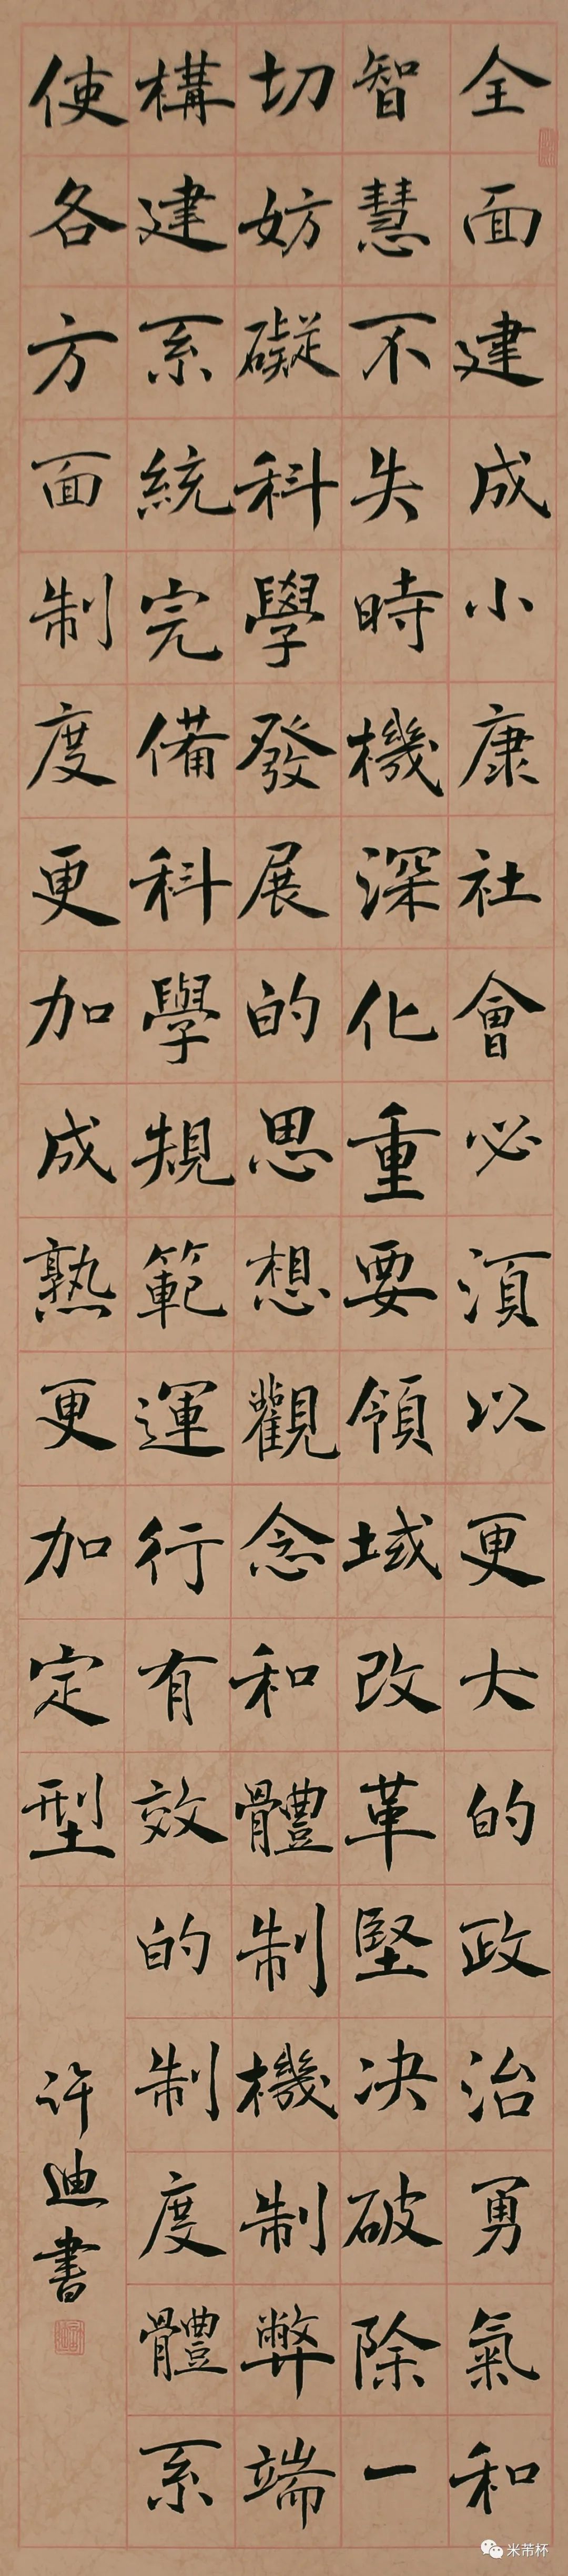 全面建成小康社會必須以更大的政治勇氣和
智慧不失時機深化重要領域改革堅决破除一
切妨礙科學發展的思想觀念和體制機制弊端
構建系統完備科學規範運行有效的制度體系
使各方面制度更加成熟更加定型
许迪書
米芾杯